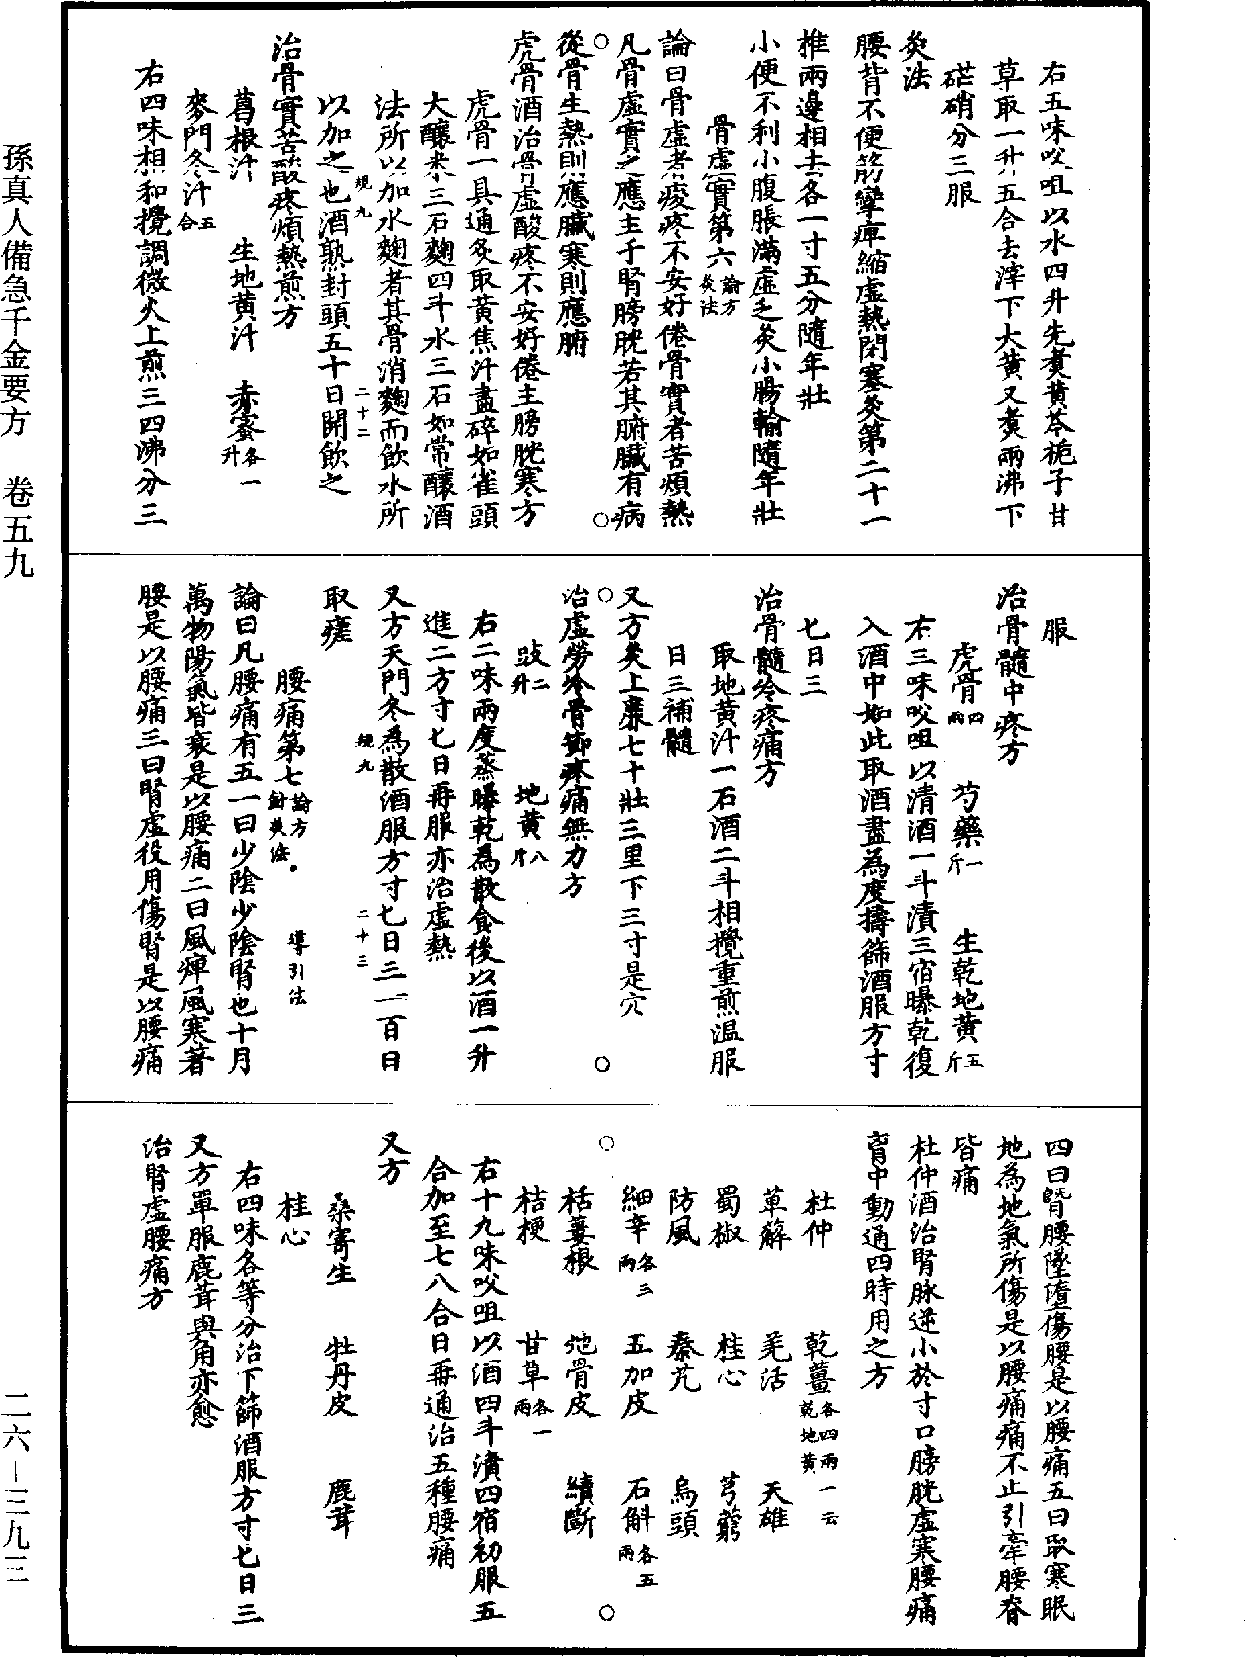 孫真人備急千金要方　卷五九
二六－三九三
右五味㕮咀以水四升先煑黄芩梔子甘
草取一升五合去滓下大黄又煑兩沸下
硭硝分三服
灸法
腰背不便筋攣痺縮虛熱閉塞灸第二十一
椎兩邊相去各一寸五分隨年壯
小便不利小腹脹滿虛乏灸小腸輸隨年壯
骨虛實第六 論方 灸法
論曰骨虛者痠疼不安好倦骨實者苦煩熱
凡骨虛實之應主于腎膀胱若其腑臟有病
從骨生熱則應臟寒則應腑
虎骨酒治骨虛酸疼不安好倦主膀胱寒方
虎骨一具通炙取黄焦汁盡碎如雀頭
大釀米三石麴四斗水三石如常釀酒
法所以加水麴者其骨消麴而飲水所
以加之也酒熟封頭五十日開飲之
規九
二十二
治骨實苦酸疼煩熱煎方
葛根汁　生地黄汁　赤蜜各一升
麥門冬汁五合
右四味相和攪調微火上煎三四沸分三
服
治骨髓中疼方
虎骨四兩　芍藥一斤　生乾地黄五斤
右三味㕮咀以清酒一斗漬三宿曝乾復
入酒中如此取酒盡為度擣篩酒服方寸
七日三
治骨髓冷疼痛方
取地黄汁一石酒二斗相攪重煎温服
日三補髓
又方灸上廉七十壯三里下三寸是穴
治虛勞冷骨節疼痛無力方
豉二升　地黄八斤
右二味兩度蒸曝乾為散食後以酒一升
進二方寸七日再服亦治虛熱
又方天門冬為散酒服方寸七日三一百日
規九
二十三
取瘥
腰痛第七 論方 導引法 針灸法
論曰凡腰痛有五一曰少陰少陰腎也十月
萬物陽氣皆衰是以腰痛二曰風痺風寒著
腰是以腰痛三曰腎虛役用傷腎是以腰痛
四曰暨腰墜墮傷腰是以腰痛五曰取寒眠
地為地氣所傷是以腰痛痛不止引牽腰脊
皆痛
杜仲酒治腎脉逆小於寸口膀胱虛寒腰痛
胷中動通四時用之方
杜仲　乾薑各四兩一云乾地黄
萆薢　羌活　天雄
蜀椒　桂心　芎藭
防風　秦艽　烏頭
細辛各三兩　五加皮　石斛各五兩
栝蔞根　地骨皮　續斷
桔梗　甘草各一兩
右十九味㕮咀以酒四斗漬四宿初服五
合加至七八合日再通治五種腰痛
又方
桑寄生　牡丹皮　鹿茸
桂心
右四味各等分治下篩酒服方寸七日三
又方單服鹿茸與角亦愈
治腎虛腰痛方